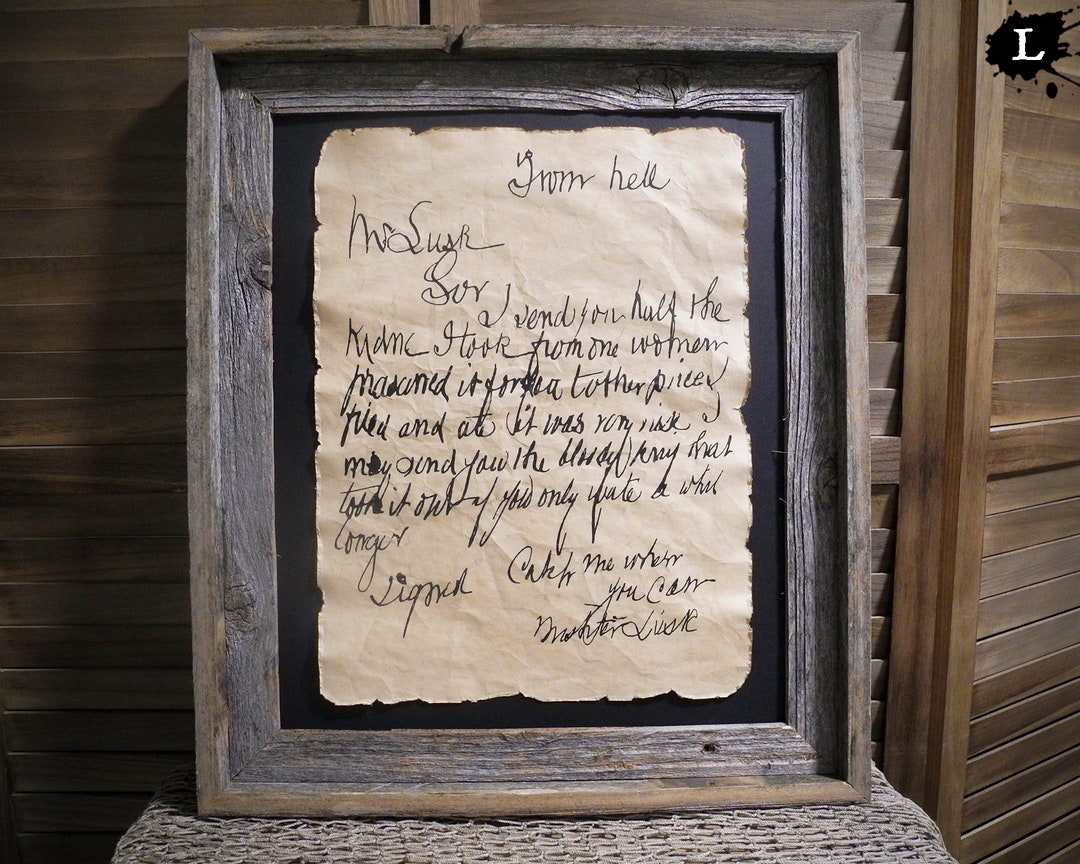 L
From hell
Mr Lusk
Sor
I send you half the
Kidne I took from one women
prasarved it for you tother piece I
fried and ate it was very nise I
may send you the bloody knif that
took it out if you only wate a whil
longer
Signed
Catch me when
you Can
Mishter Lusk